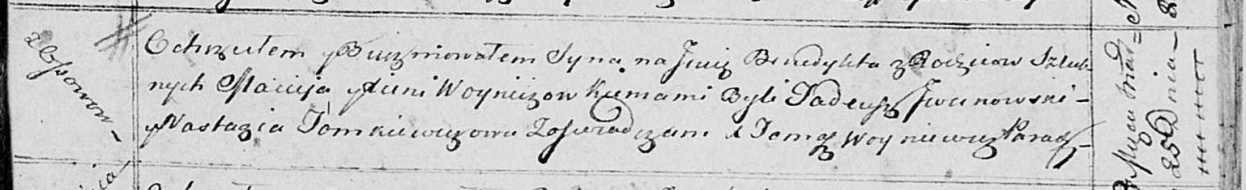 Z Ossowow –
Ochrzciłem y Bierzmowałem Syna na Jmię Benedykta z Rodzicow Szlub
nych Macieja y Anni Woyniczow Kumami Byli Tadeusz Jwanowski –
y Nastazia Tomkiewiczowa Zaswiadczam X Tomasz Woyniewicz Parag –
25 Dnia –